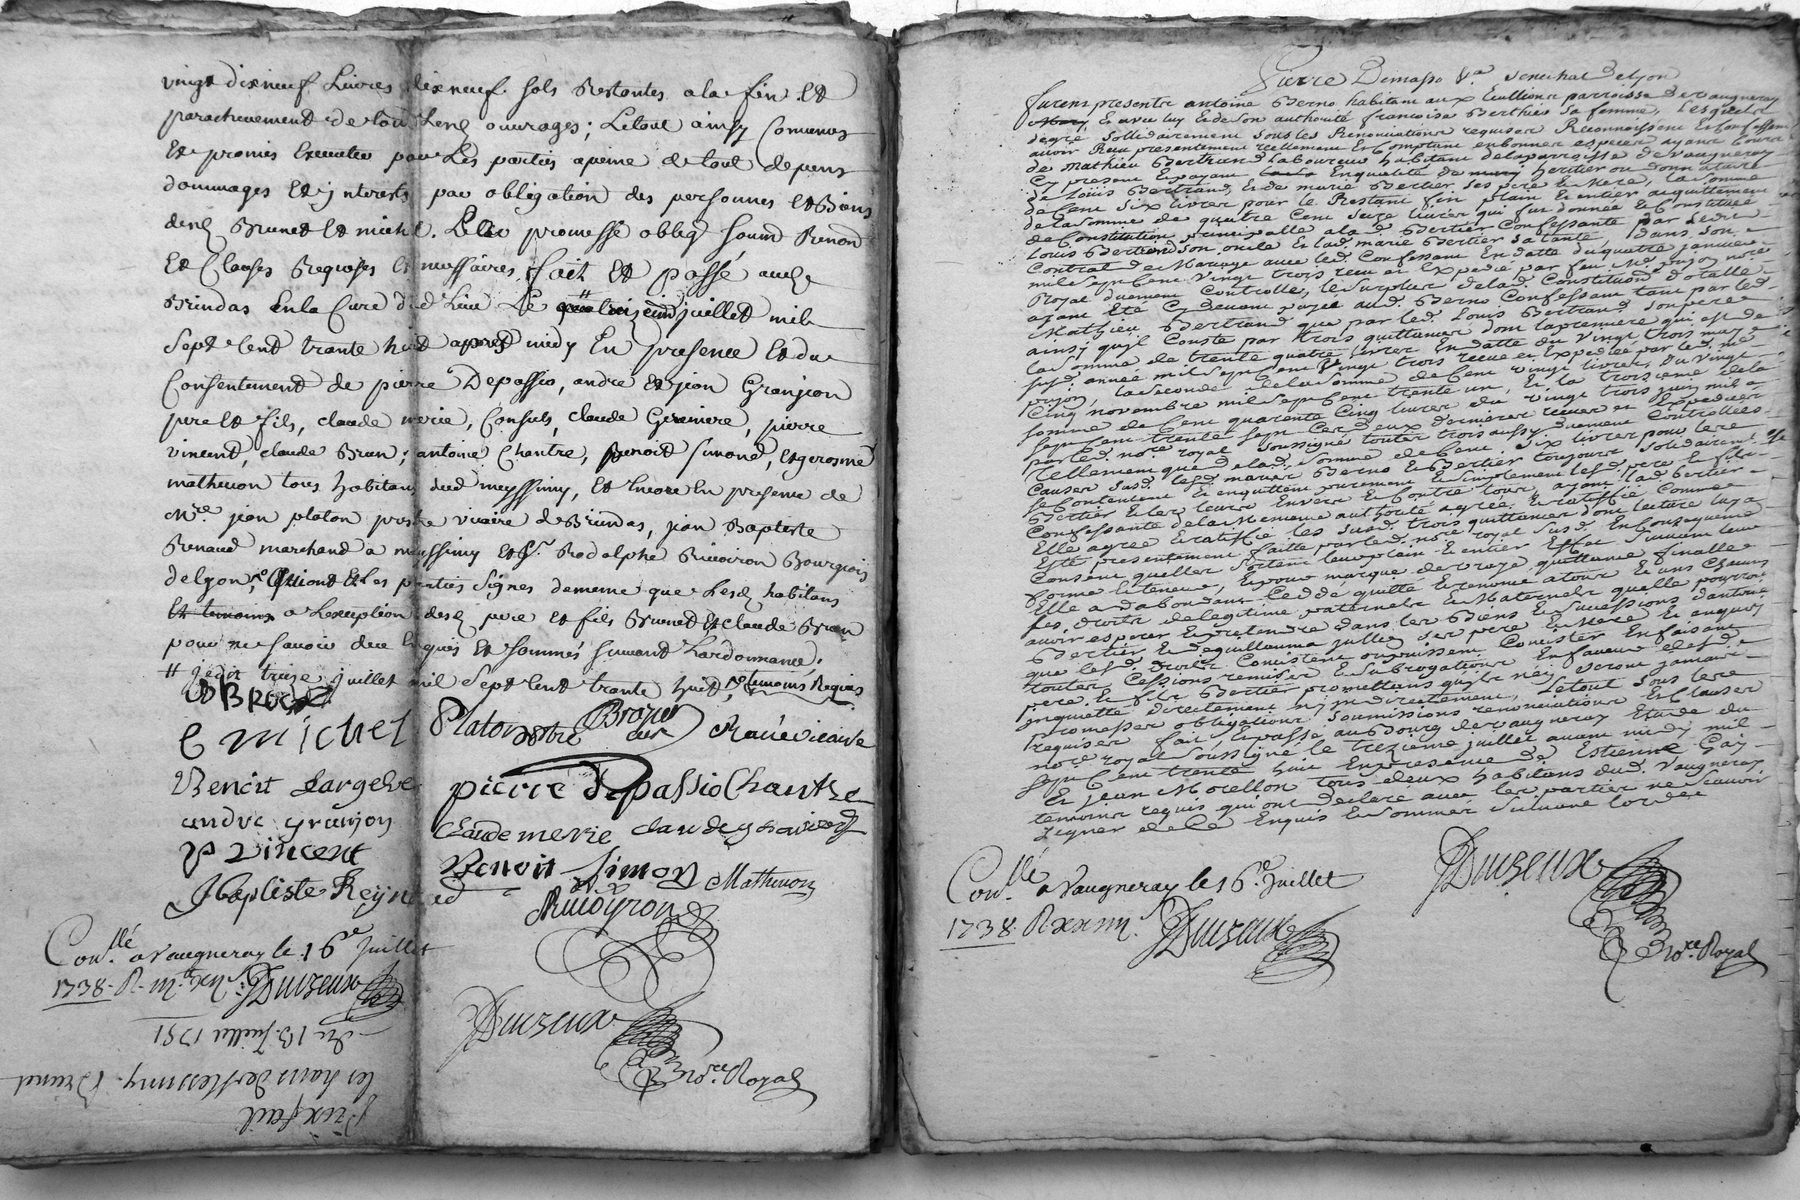 vingt dixneuf Livres dixneuf sols Restantes a la fin Et
parachevement de tous Lesd ouvrages; Letout ainsy Convenus
Et promis Executer par Les parties apeine de tout depens
dommages Et jnterests par obligation des personnes Et Biens
desd Brunet Et michel. promesse oblig soumd Renond
Et Clauses Requises fait Et passé aud
Brindas En la Cure dud Lieu Le juillet mil
Sept Cent trante huit apres midy En presence Et du
Consentement de pierre Depassio, andré Et jean Granjeon
pere Et fils, claude merie, Consuls, claude pierre
vincent, claude Brun; antoine Chantre, Benoit Simond, Et gerosme
mathenon tous habitans dud meyssimy, Et Encore En presence de
Mre. jean platon vicaire de Brindas, jean Baptiste
Renaud marchand a meyssimy Et Sr. Rodolphe Bourgeois
delyon, Et Les parties signes dememe que Lesd habitans
Et temoins a Lexeption desd pere Et fils Brunet Et claude Brun
pour ne scavoir de ce Enquis Et sommés suivant Lordonnance.
# jedit treize juillet mil Sept Cent trante huit temoins Requis
C michel Platon
Benoit Largeve pierre depassio Chantre
andre granjon claude merie claude
P vincent Benoit Simond Mathenon
JBaptiste Reynaud
Conllé. a Vaugneray le 16e juillet
1738. R. JDuizeux
JDuizeux
nore. Royal
du 13. Juillet 1751
les hans de Messimy. Brunet
Prixfait
senechal de lyon
furent presents antoine Berno habitant aux parroisse de Vaugneray
Et avec luy Et de son authorité françoise Berthier sa femme, Lesquels de
degré sollidairement sous les Renonciations requises Reconnoissent Et Confessent
avoir Reçu presentement réellement En Comptant en bonnes especes ayant Cours
de Mathieu Bertrand Laboureur habitant de la parroisse de Vaugneray
Cy present Et payant En qualité de heritier ou donnataire
de Louis Bertrand, Et de marie Bertier ses pere Et Mere, la somme
de Cent six livres pour le Restant fin plain Et entier acquittement
de la somme de quatre Cent seize livres qui fut donnée Et Constituée
de Constitution principalle a lad Bertier Confessante par led
Louis Bertrand son oncle Et lad. marie Bertier sa tante, dans son
Contrat de Mariage avec led. Confessant En datte du quatre janvier
mil sept Cent vingt trois receu Et Expedié par feu Me. pujon nore.
Royal duement Controllé, le surplus de lad Constitution totalle
ayant Eté Cy devant payé aud Berno Confessant tant par led
Mathieu Bertrand que par led Louis Bertrand son pere
ainsy qu'il Conste par trois quittances dont la premiere qui est de
la somme de trente quatre livres En datte du vingt trois may
susd. année mil sept Cent Vingt trois receue Et Expediée par led. me
pujon, la seconde de la somme de Cent vingt livres, du vingt
Cinq novembre mil sept Cent trente un, Et la troisieme de la
somme de Cent quarente Cinq livres du vingt trois juin mil
sept Cent trente sept Ces deux dernieres receues Et Expediées
par led. nore royal soussigné toutes trois aussy duement Controllées
Tellement que de lad. somme de Cent six livres pour les
Causes susd. lesd mariés Berno Et Bertier toujours solidairement se
se Contentent Et en quittent purement Et simplement lesd. pere Et fils
Bertier Et les leurs Envers Et Contre tous ayant lad Bertier
Confessante de la Mememe authorité agréé, Et ratiffié Comme
Elle agrée Et ratiffie les susd. trois quittances dont lecture luy a
Eté presentement faitte par led. nore royal susd. En Consequence
Consent quelles sortent leur plain Et entier Effet suivant leur
forme Et teneur, Et pour marque de vraye quittance finalle
Elle a d'abondant Ceddé quitté Et renoncé a tous Et uns Chacuns
ses droits de legitime paternels Et Maternels quelle pouroit
avoir esperer Et pretendre dans les Biens Et successions d'antoine
Bertier Et de guillauma jullien ses pere Et Mere En
que lesd. droits Consistent ou puissent Consister En faisant
toutes Cessions remises Et subrogations En faveur desd.
pere Et fils Bertier promettant qu'ils n'en seront jamais
inquiettés directement ny indirectement, Le tout sous les
promesses obligations soumissions renonciations Et Clauses
requises fait Et passé au Bourg de Vaugneray Etude du
nore royal soussigné le treizieme juillet avant midy mil
sept Cent trente huit En presence de Estienne Gay
Et jean Morellon tous deux habitans dud. Vaugneray
temoins requis qui ont declaré avec les parties ne scavoir
signer de ce Enquis Et sommés suivant lordce
JDuizeux
nore. Royal
Conllé a Vaugneray le 16e. juillet
1738. R JDuizeux